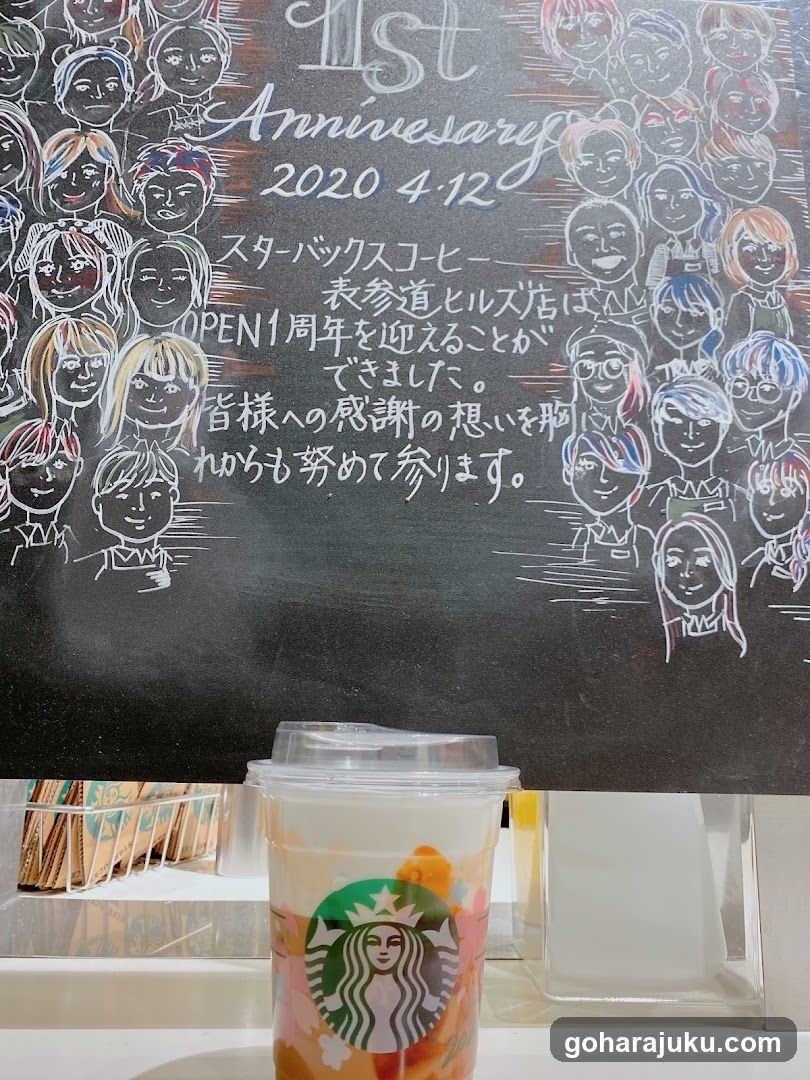 1st
Annivesary
2020 4.12
スターバックスコーヒー
表参道ヒルズ店は
OPEN1周年を迎えることが
できました。
皆様への感謝の想いを胸に
れからも努めて参ります。
goharajuku.com